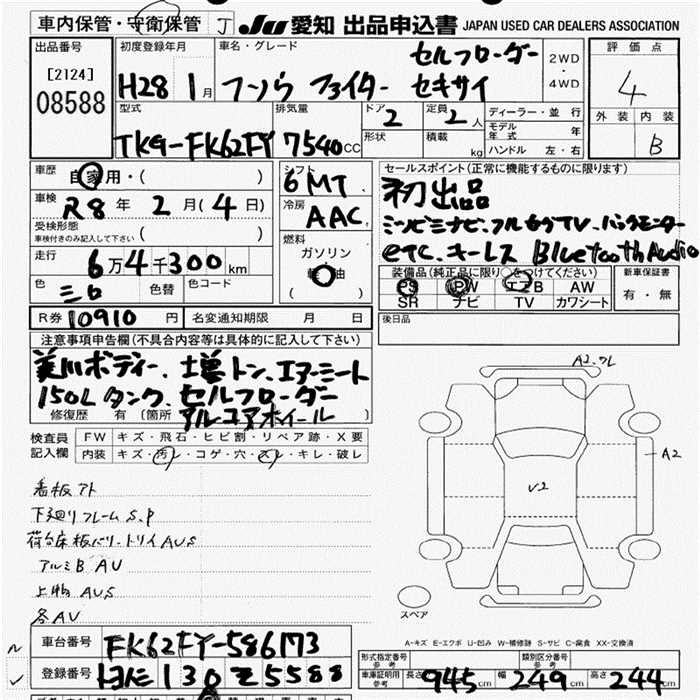 車内保管・安衛保管 J JU 愛知 出品申込書 JAPAN USED CAR DEALERS ASSOCIATION
出品番号 [2124] 08588
初度登録年月 H28 1月
車名・グレード セルフローダー
フソウ ファイター セキサイ
2WD・4WD
評価点 4
外装 内装 B
型式 TKG-FK62FY
排気量 7540 CC
ドア 2
形状
定員 2 人
積載 kg
ディーラー・並行
モデル年式 年
ハンドル 左・右
車歴 自家用・( )
車検 R8 年 2 月 (4 日)
受検形態 車検付きのみ記入して下さい ( )
走行 6万4千300km
色 シロ 色替 色コード
R券 10910 円 名変通知期限 月 日
シフト 6MT
冷房 AAC
燃料 ガソリン
軽油
( )
セールスポイント(正常に機能するものに限ります)
初出品
ミツビシナビ、フルセグTV、バックモニター
etc、キーレス Bluetooth Audio
装備品(純正品に限り○をつけてください)
PS PW エアB AW
SR ナビ TV カワシート
新車保証書
有・無
後日品
注意事項申告欄(不具合内容等は具体的に記入して下さい)
美川ボディー、増トン、エアーシート
150Lタンク、セルフローダー
修復歴 有 〔箇所 アルコアホイール 〕
検査員記入欄 FW キズ・飛石・ヒビ割・リペア跡・X要
内装 キズ・汚レ・コゲ・穴・スレ・キレ・破レ
看板アト
下廻りフレームS.P
荷台床板バリ・トリイAUS
アルミB AU
上物 AUS
各AV
A2.ワレ
A2
V2
スペア
A-キズ E-エクボ U-凹み W-補修跡 S-サビ C-腐食 XX-交換済
車台番号 FK62FY-586173
登録番号 130 5588
形式指定番号 参考
類別区分番号 参考
車庫証明用参考 長さ 945cm 幅 249cm 高さ 244cm